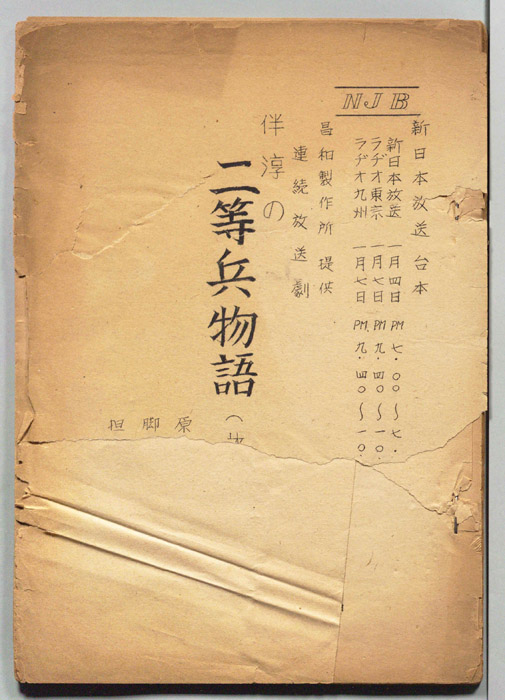 NJB
新日本放送台本
新日本放送 一月四日 PM 七・〇〇〜七・
ラヂオ東京 一月七日 PM 九・四〇〜一〇・
ラヂオ九州 一月七日 PM 九・四〇〜一〇・
昌和製作所 提供
連続放送劇
伴淳の
二等兵物語
原 脚 担